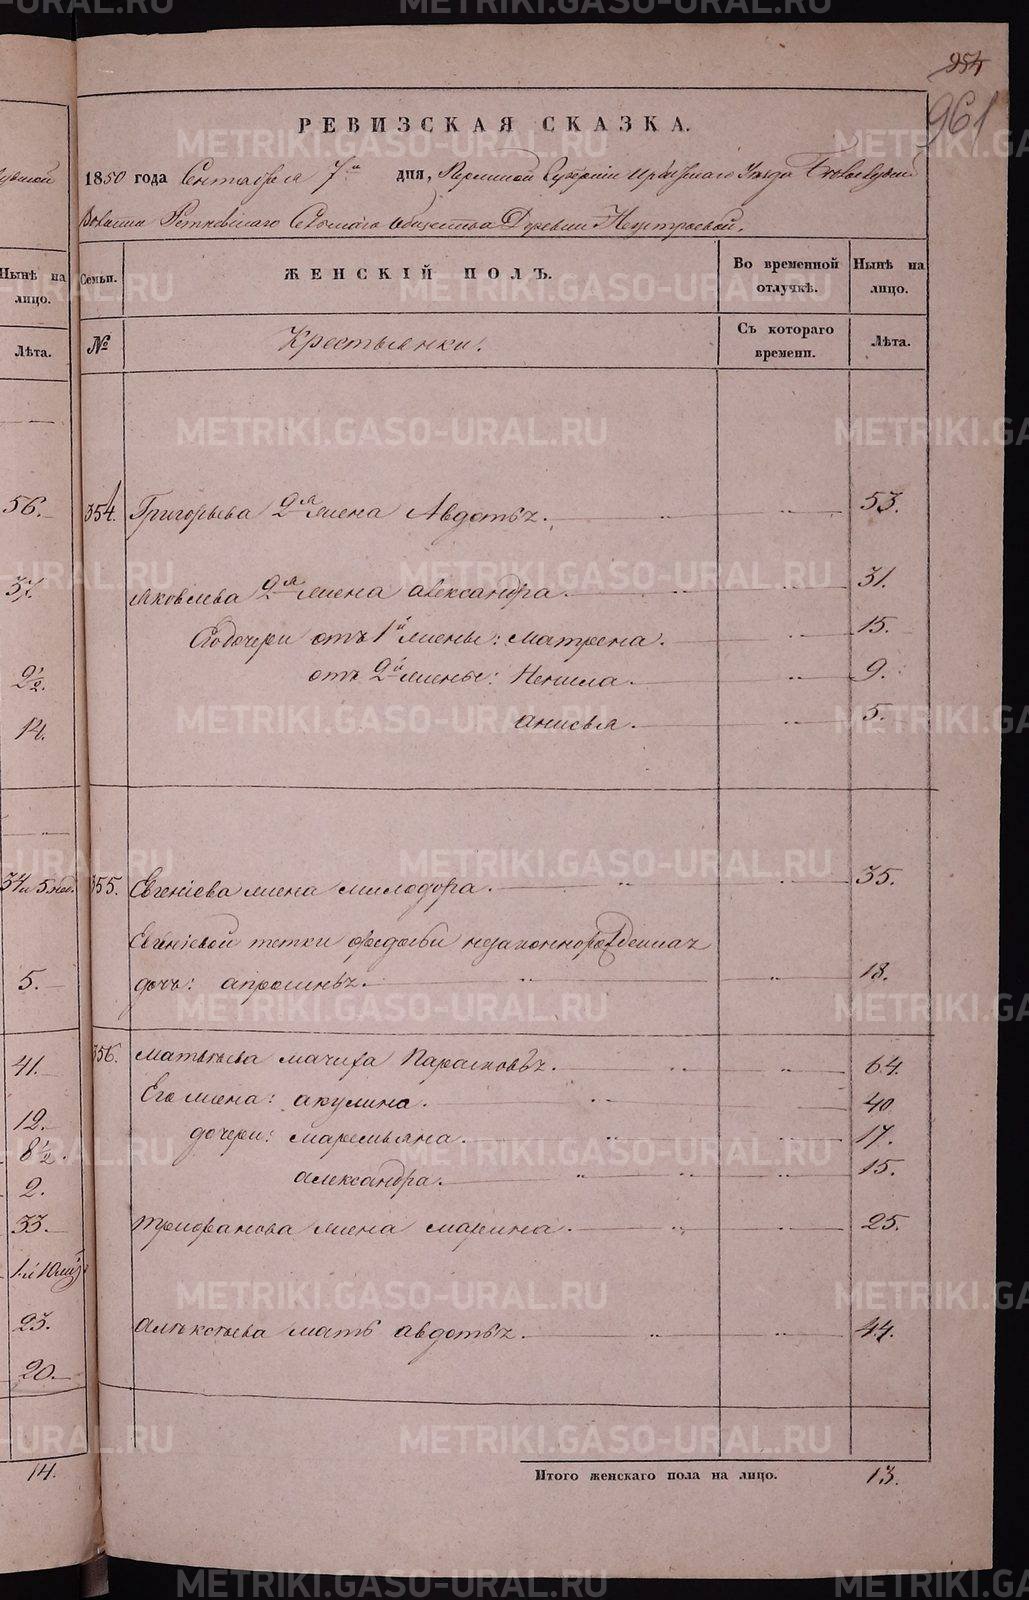 254
961
РЕВИЗСКАЯ СКАЗКА.
1850 года Сентября 7го дня, Пермской Губернiи Ирбитскаго Уѣзда
Волости Сельскаго Общества Деревни
Семьи. ЖЕНСКIЙ ПОЛЪ. Во временной отлучкѣ. Нынѣ на лицо.
№ Крестьянки. Съ котораго времени. Лѣта.
354. Григорьева 2я жена Авдотья. 53.
Яковлева 2я жена Александра. 31.
Его дочери отъ 1й жены: Матрена. 15.
отъ 2й жены: Ненила. 9.
Анисья. 5.
355. Евгенiева жена Милодора. 35.
Евгенiевой тетки Федосьи незаконнорожденная
дочь: Апросинья. 18.
356. Матвѣева мачиха Парасковья. 64.
Его жена: Акулина. 40
дочери: Маремьяна. 17.
Александра. 15.
Трифанова жена Марина. 25.
Алѣксѣева мать Авдотья. 44.
Итого женскаго пола на лицо. 13.
Нынѣ на лицо.
Лѣта.
56.
37.
2½.
14.
5.
41.
12.
8½.
2.
33.
23.
20.
14.
METRIKI.GASO-URAL.RU